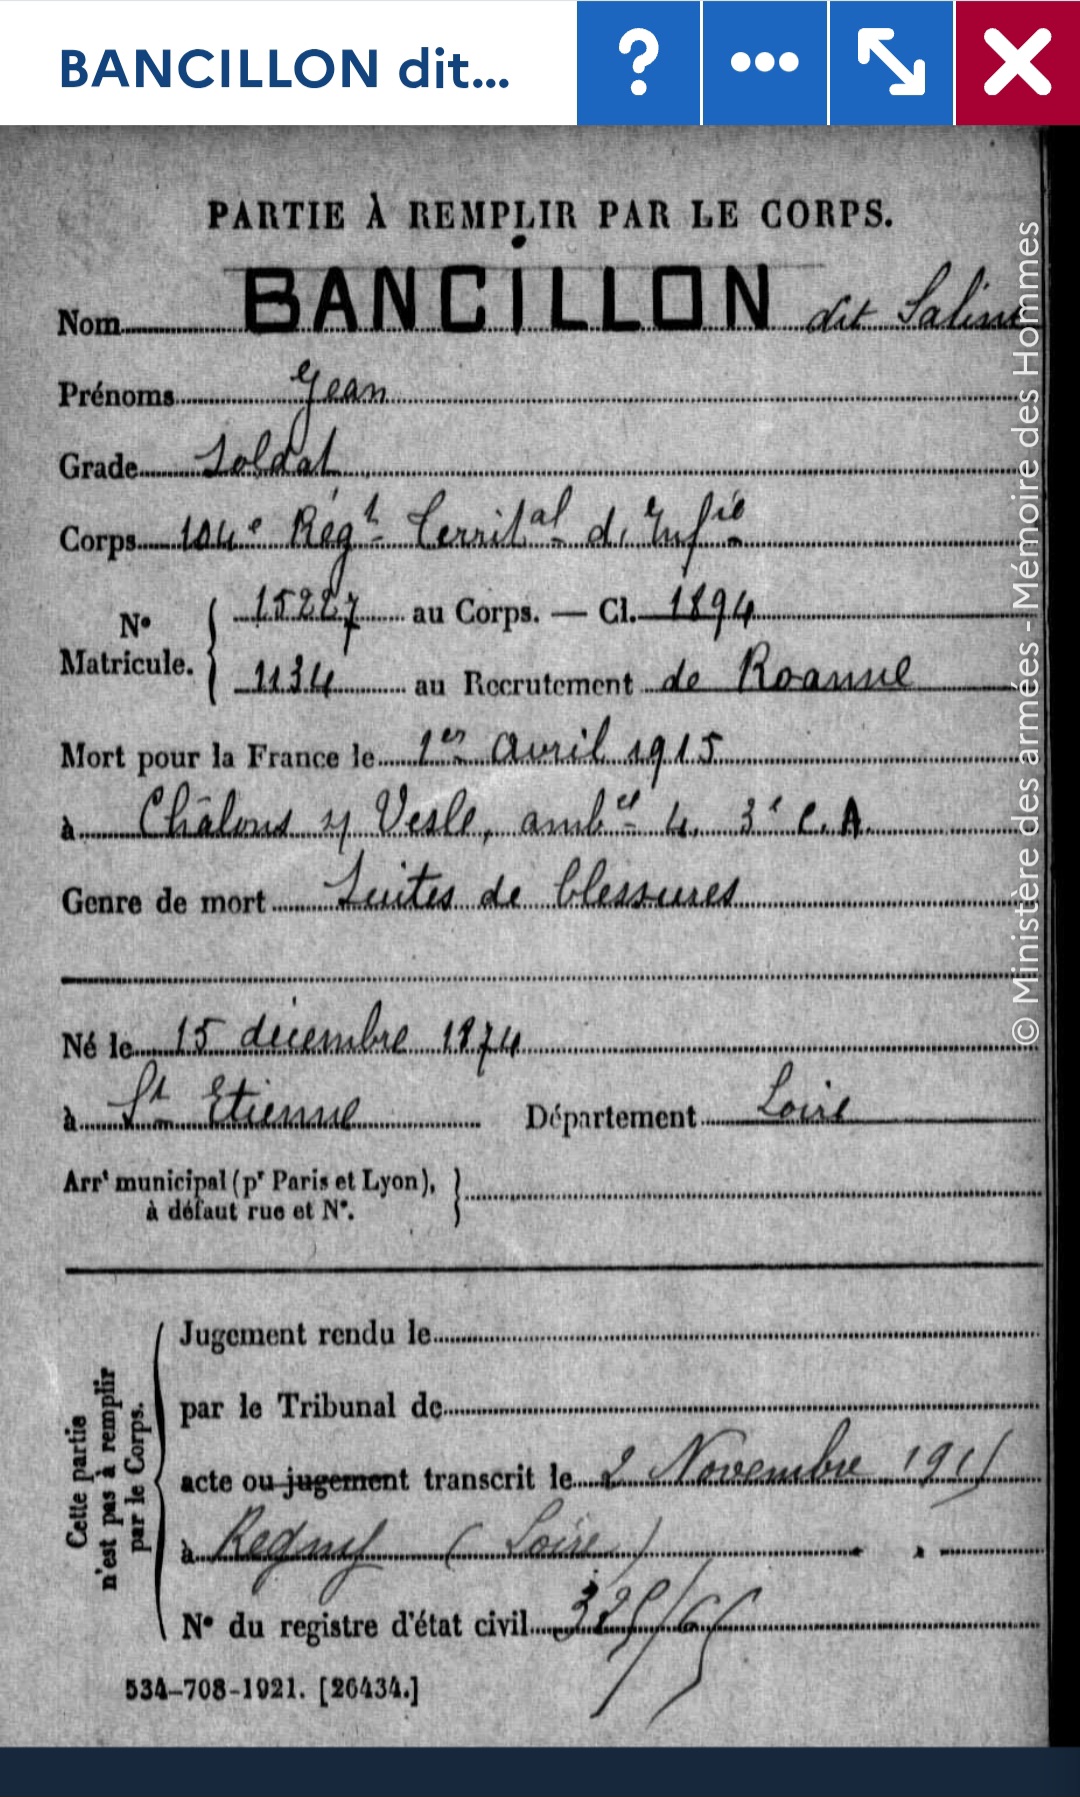 BANCILLON dit...
PARTIE À REMPLIR PAR LE CORPS.
Nom BANCILLON dit
Prénoms Jean
Grade Soldat
Corps 104e Régt Territal d'Infie
N° Matricule. { 15227 au Corps. — Cl. 1894
1134 au Recrutement de Roanne
Mort pour la France le 1er avril 1915
à Châlons s/ Vesle, ambce 4. 3e C.A.
Genre de mort Suites de blessures
Né le 15 décembre 1874
à St Etienne Département Loire
Arrt municipal (pr Paris et Lyon), }
à défaut rue et N°.
Cette partie n'est pas à remplir par le Corps.
Jugement rendu le
par le Tribunal de
acte ou jugement transcrit le 2 Novembre 1915
à Regny (Loire)
N° du registre d'état civil
534-708-1921. [26434.]
© Ministère des armées - Mémoire des Hommes